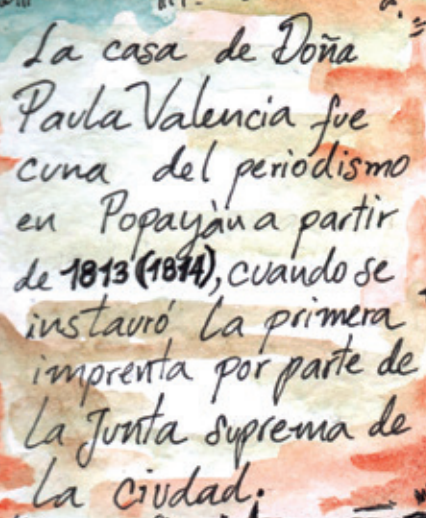 La casa de Doña
Paula Valencia fue
cuna del periodismo
en Popayàn a partir
de 1813 (1814), cuando se
instauró la primera
imprenta por parte de
la Junta suprema de
la ciudad.